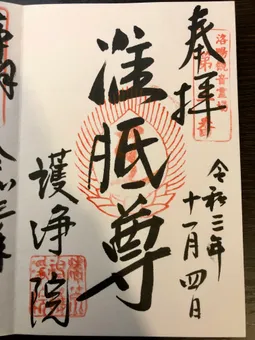 奉拝
洛陽観音霊場
令和三年
十一月四日
准胝尊
護浄院